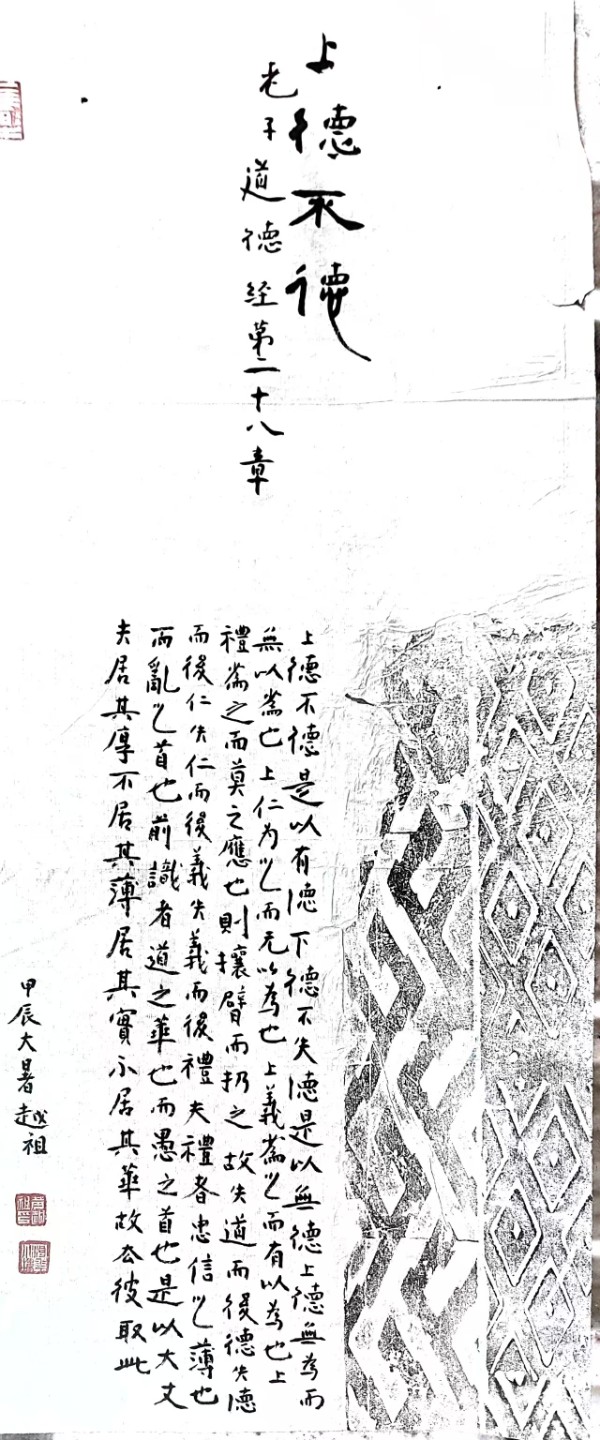 上德不德
老子道德经第二十八章
上德不德是以有德下德不失德是以無德上德無為而
無以為也上仁为之而无以為也上義為之而有以為也上
禮為之而莫之應也則攘臂而扔之故失道而後德失德
而後仁失仁而後義失義而後禮夫禮者忠信之薄也
而亂之首也前識者道之華也而愚之首也是以大丈
夫居其厚不居其薄居其實不居其華故去彼取此
甲辰大暑越祖